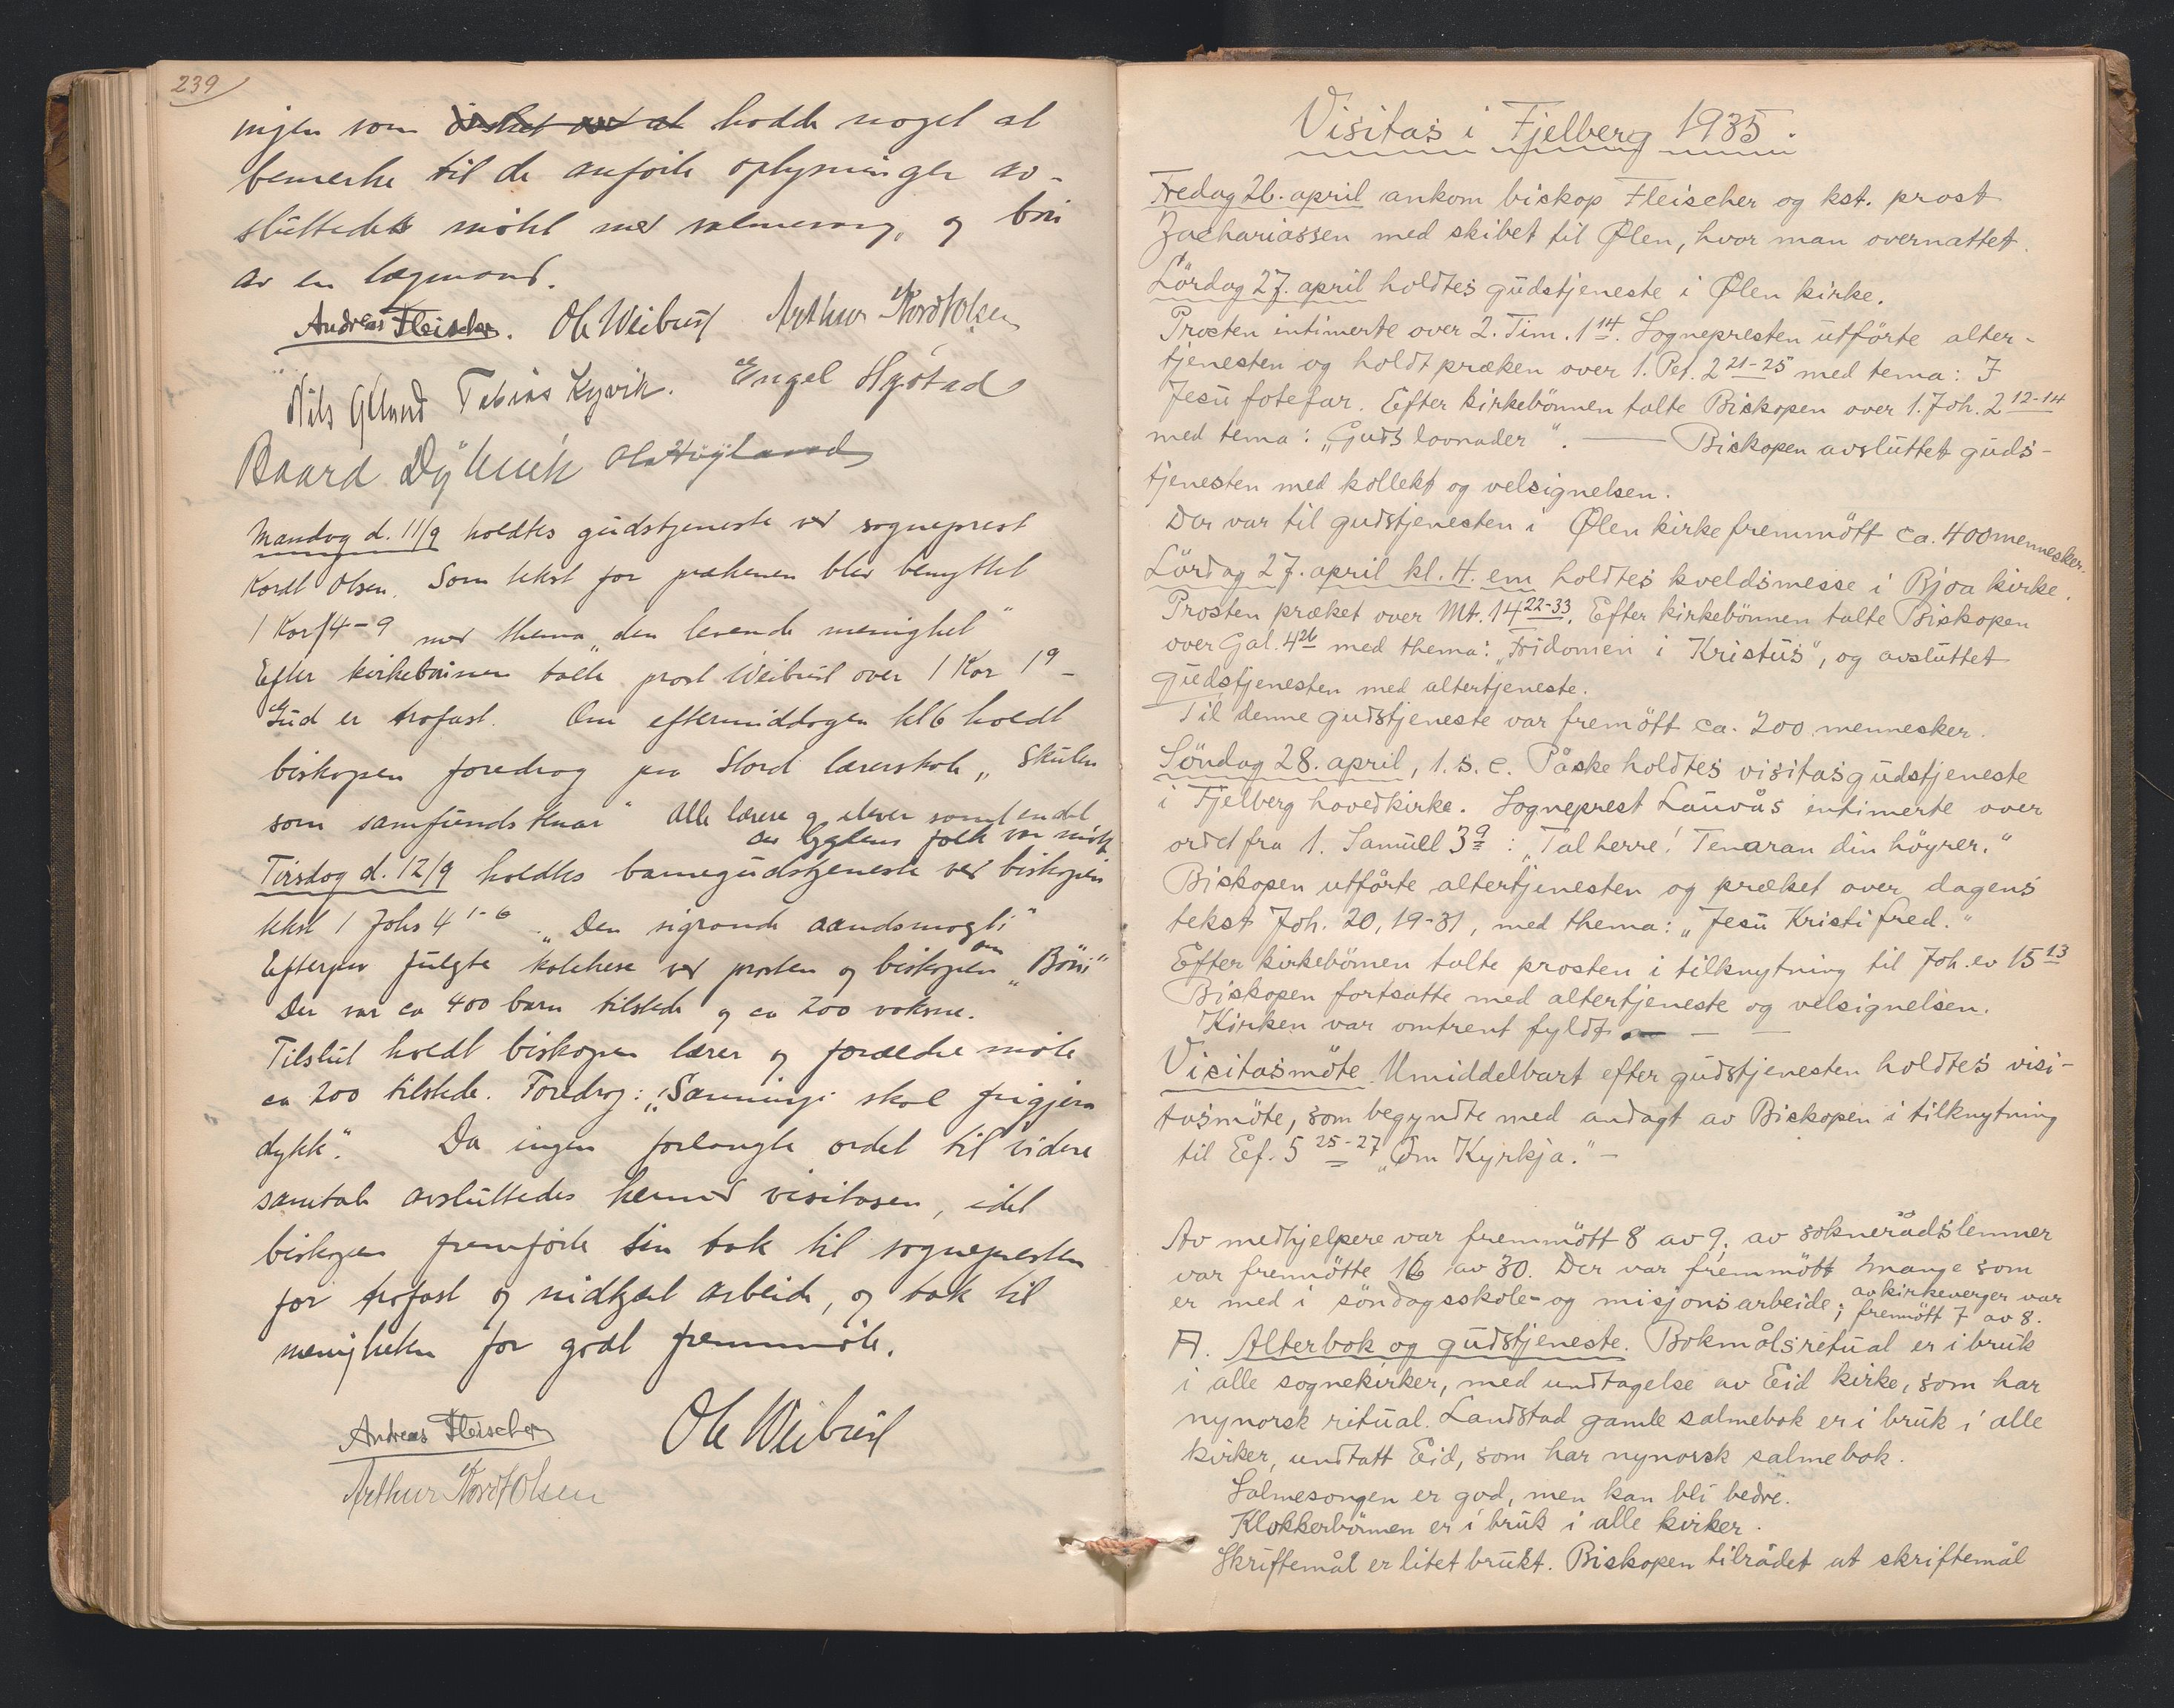 239
ingen som ønsket ord at hadde noget at
bemerke til de anførte oplysninger av-
sluttedes møtet med salmesang, og bøn
av en lægmand.
Andreas Fleischer. Ole Weibust Arthur Kordt Olsen
Nils Tobias Kyvik. Engel Hystad
Baard Ola Høyland
Mandag d. 11/9 holdtes gudstjeneste ved sogneprest
Kordt Olsen. Som tekst for prækenen blev benyttet
1 Kor 1 4-9 med thema „den levende menighet"
Efter kirkebønnen talte prost Weibust over 1 Kor 1 9 -
Gud er trofast. Om eftermiddagen kl 6 holdt
biskopen foredrag paa Stord lærerskole „Skulen
som samfundsknar" Alle lærere og elever samt endel
av bygdens folk var møtt
Tirsdag d. 12/9 holdtes barnegudstjeneste ved biskopen
tekst 1 Johs 4 1-6 „Den sigrande aandsmagti"
Efterpaa fulgte katekese ved prosten og biskopen om „Bøn"
Der var ca 400 barn tilstede og ca 200 voksne.
Tilslut holdt biskopen lærer og forældre møte
ca 200 tilstede. Foredrag: „Sanningi skal frigjera
dykk". Da ingen forlangte ordet til videre
samtale avsluttedes hermed visitasen, idet
biskopen fremførte sin tak til sognepresten
for trofast og nidkjært arbeide, og tak til
menigheten for godt fremmøte.
Andreas Fleischer Ole Weibust
Arthur Kordt Olsen
Visitas i Fjelberg 1935.
Fredag 26. april ankom biskop Fleischer og kst. prost
Zachariassen med skibet til Ølen, hvor man overnattet.
Lördag 27. april holdtes gudstjeneste i Ølen kirke.
Prosten intimerte over 2. Tim. 1 14. Sognepresten utförte alter-
tjenesten og holdt præken over 1. Pet. 2 21-25 med tema: I
Jesu fotefar. Efter kirkebönnen talte Biskopen over 1. Joh. 2 12-14
med tema: „Guds lovnader". — Biskopen avsluttet guds-
tjenesten med kollekt og velsignelsen.
Der var til gudstjenesten i Ølen kirke fremmött ca. 400 mennesker.
Lördag 27. april kl. 4. em holdtes kveldsmesse i Bjoa kirke.
Prosten præket over Mt. 14 22-33. Efter kirkebönnen talte Biskopen
over Gal. 4 26 med thema: „Fridomen i Kristus", og avsluttet
gudstjenesten med altertjeneste.
Til denne gudstjeneste var fremött ca. 200 mennesker.
Söndag 28. april, 1. s. e. Påske holdtes visitasgudstjeneste
i Fjelberg hovedkirke. Sogneprest Lauvås intimerte over
ord fra 1. Samuel 3 9 : „Tal herre! Tenaran din höyrer."
Biskopen utförte altertjenesten og præket over dagens
tekst Joh. 20, 19-31, med thema: „Jesu Kristi fred."
Efter kirkebönnen talte prosten i tilknytning til Joh. ev 15 13
Biskopen fortsatte med altertjeneste og velsignelsen.
Kirken var omtrent fyldt — — —
Visitasmöte. Umiddelbart efter gudstjenesten holdtes visi-
tasmöte, som begyndte med andagt av Biskopen i tilknytning
til Eef. 5 25-27 „Om Kyrkja." —
Av medhjelpere var fremmött 8 av 9, av soknerådslemner
var fremmötte 16 av 30. Der var fremmött mange som
er med i söndagsskole- og misjonsarbeide; av kirkeverger var
fremmött 7 av 8.
A. Alterbok og gudstjeneste. Bokmålsritual er i bruk
i alle sognekirker, med undtagelse av Eid kirke, som har
nynorsk ritual. Landstad gamle salmebok er i bruk i alle
kirker, undtatt Eid, som har nynorsk salmebok.
Salmesongen er god, men kan bli bedre.
Klokkerbönnen er i bruk i alle kirker.
Skriftemål er litet brukt. Biskopen tilrådet at skriftemål